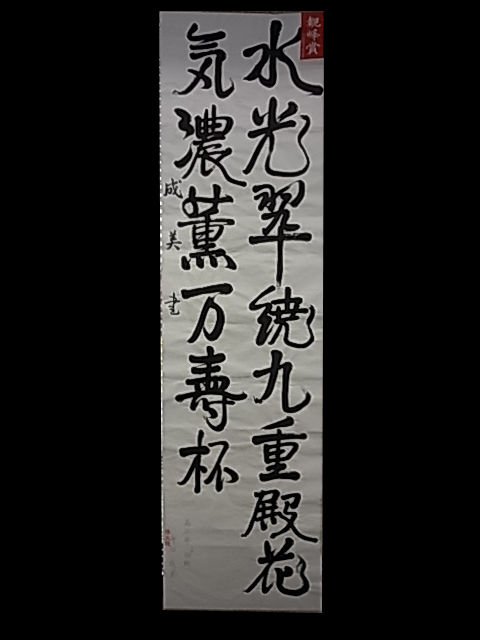 観峰賞
水光翠繞九重殿花
気濃薫万壽杯
成美書